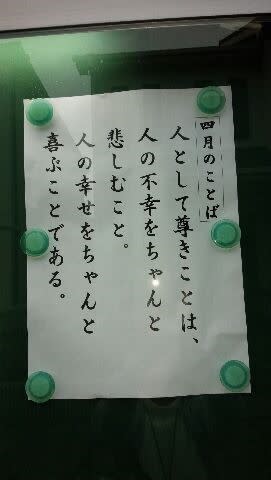 四月のことば
人として尊きことは、
人の不幸をちゃんと
悲しむこと。
人の幸せをちゃんと
喜ぶことである。